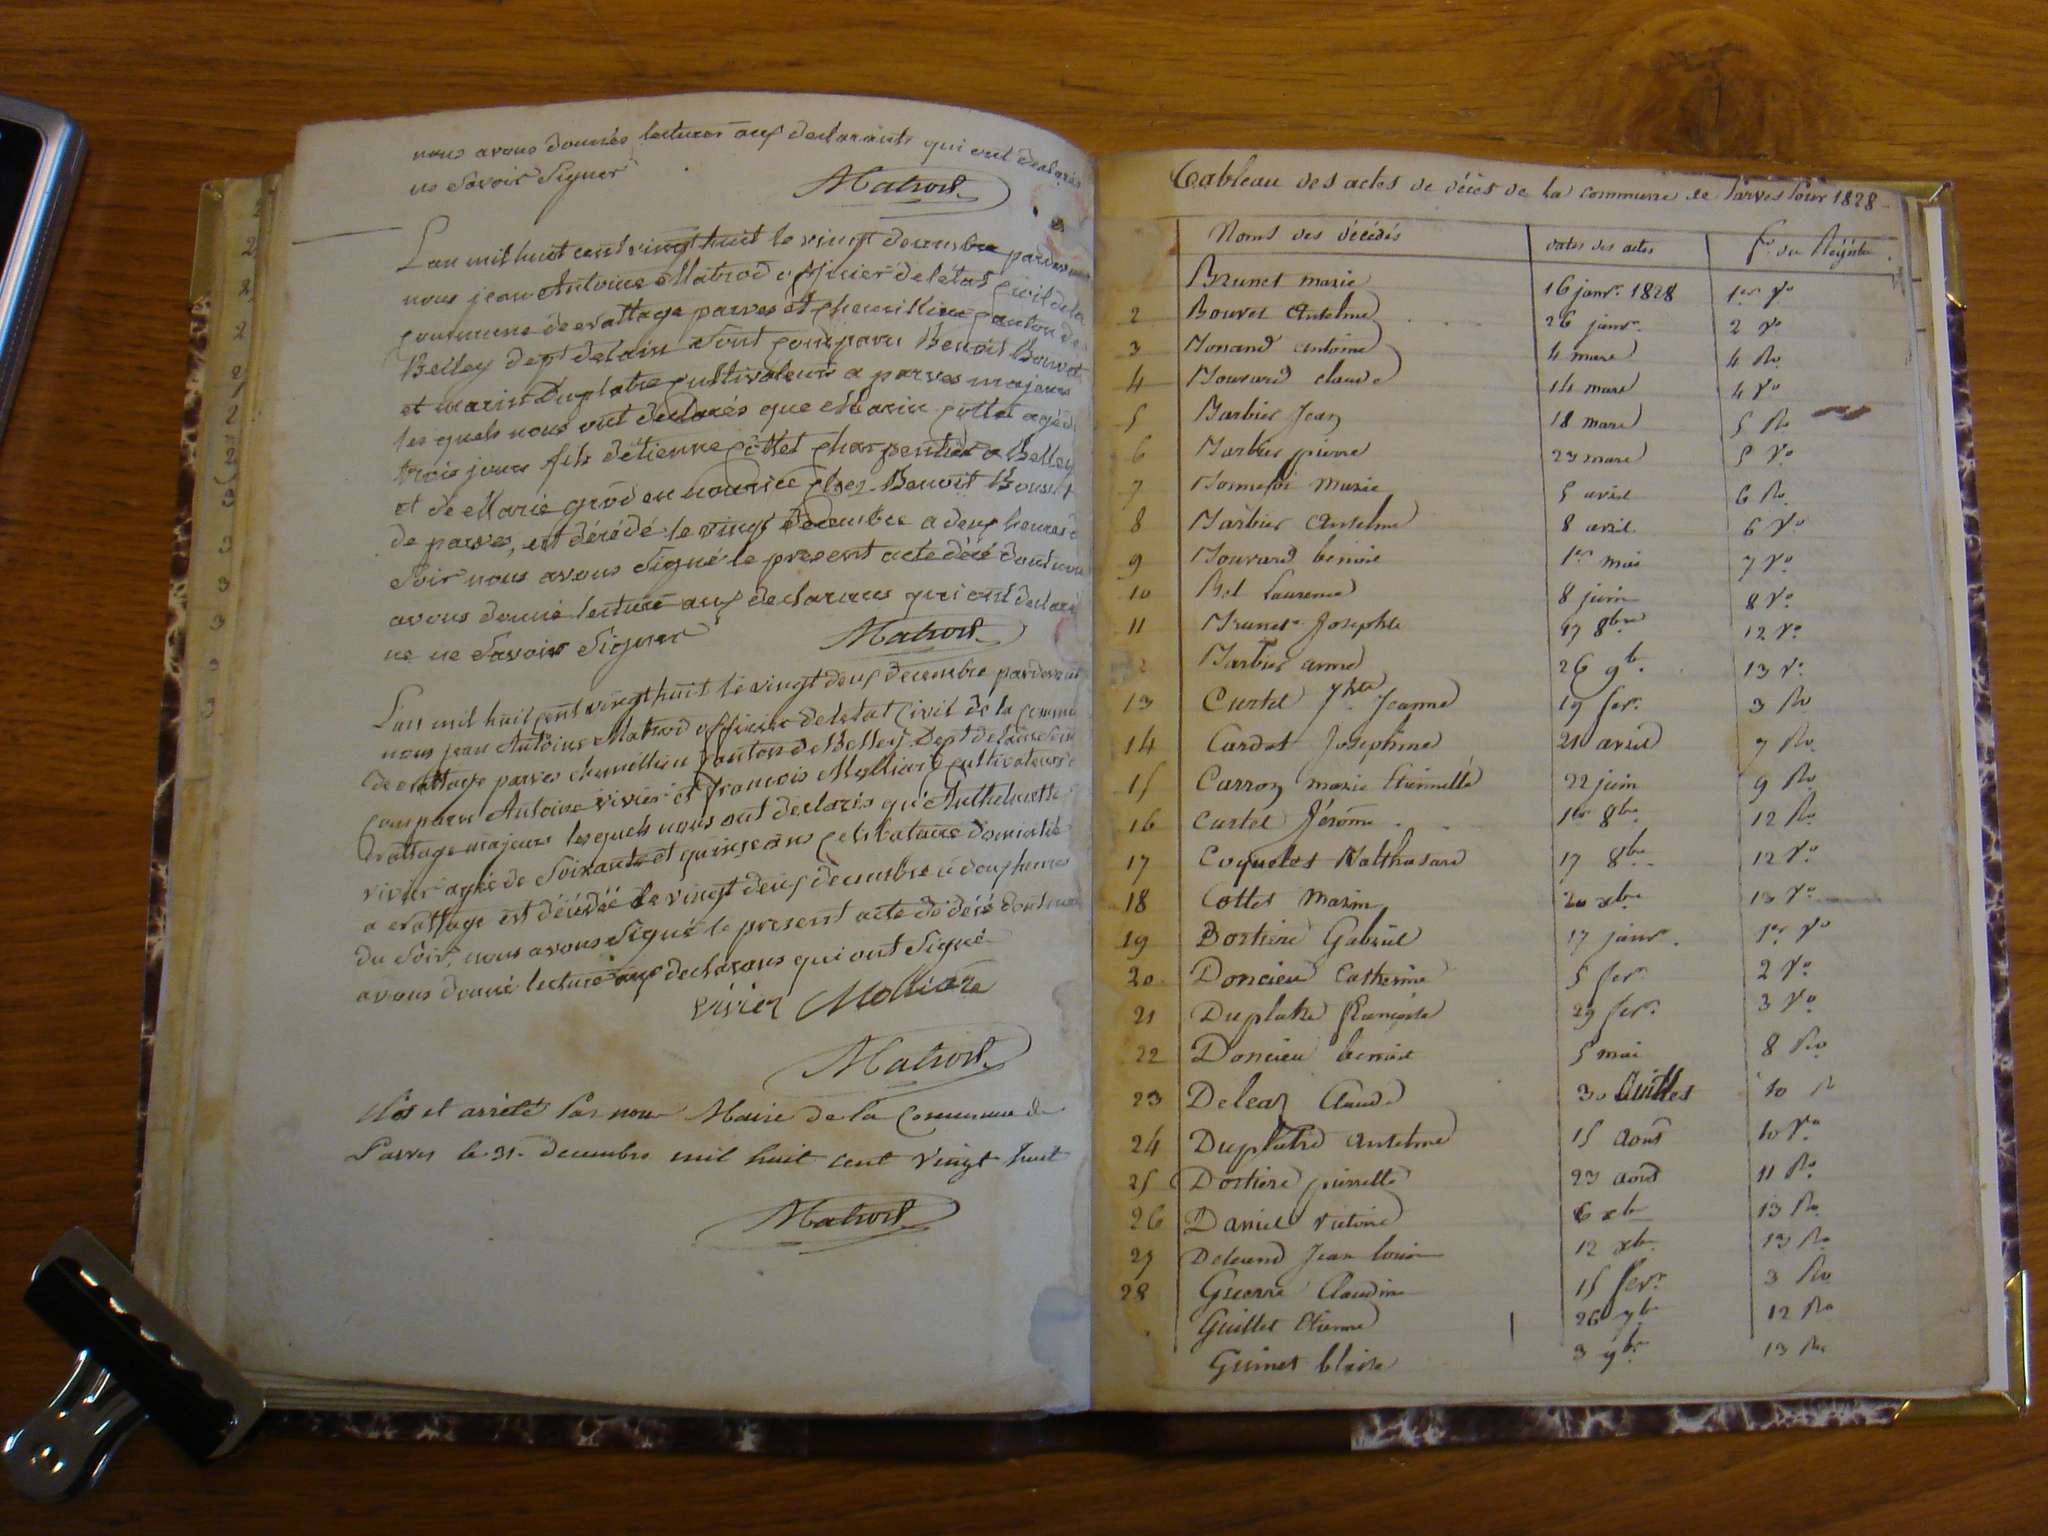 nous avons donnés lectures aux declarants qui ont declarés
ne Savoir Signer
Matrod
L'an mil huit cent vingt huit le vingt decembre pardevant
nous jean Antoine Matrod officier de létat civil de la
commune de erattage parves et chemillieu canton de
Belley dept delain Sont comparu Benoit Bouvet
et marin Duplatre cultivateurs a parves majeurs
les quels nous ont declarés que Marin Cottet agé de
trois jours fils détienne Cottet charpentier a Belley
et de Marie grod en nourrice chez Benoit Bouvet
de parves, est décédé le vingt decembre a deux heures d
Soir nous avons Signé le present acte déce dont nous
avons donné lecture aux declarans qui ont declaré
ne ne Savoir Signer
Matrod
L'an mil huit cent vingt huit le vingt deux decembre pardevant
nous jean Antoine Matrod officier de létat civil de la commu
de erattage parves chemillieu canton de Belley Dept de lain Sont
comparu Antoine vivier et francois Molliard cultivateurs
erattage majeurs lesquels nous ont declarés qu'Anthelmette
vivier agée de Soixante et quinze ans celibataire domicilié
a erattage est décédée le vingt deux decembre a deux heures
du Soir, nous avons Signé le present acte de décé dont nous
avons donné lecture aux declarans qui ont Signé
vivier Molliard
Matrod
Clos et arrêté Par nous Maire de la Commune de
Parves le 31 decembre mil huit cent Vingt huit
Matrod
Tableau des actes de décès de la commune de Parves Pour 1828
Noms des décédés dates des actes fo du Régistre
Brunet marie 16 janr. 1828 1er Vo
2 Bouvet Anselme 26 janr. 2 Vo
3 Bonand Antoine 4 mars 4 Ro
4 Bouvard claude 14 mars 4 Vo
5 Barbier Jean 18 mars 5 Ro
6 Barbier pierre 23 mars 5 Vo
7 Bonnefoi Marie 5 avril 6 Ro
8 Barbier Anselme 8 avril 6 Vo
9 Bouvard benoit 1er mai 7 Vo
10 Bel Laurence 8 juin 8 Vo
11 Brunet Josephte 17 8bre 12 Vo
2 Barbier anne 26 9b. 13 Vo
13 Curtet Jhte Jeanne 19 fer. 3 Ro
14 Cardot Josephine 21 avril 7 Ro
15 Carron marie Etiennette 22 juin 9 Ro
16 Curtet Jérome 1er 8bre 12 Ro
17 Coquelet Balthasard 17 8bre 12 Vo
18 Cottet Marin 20 xbre 13 Vo
19 Dortiere Gabriel 17 janr. 1er Vo
20 Doncieu Catherine 5 fer 2 Vo
21 Duplatre françoise 29 fer. 3 Vo
22 Doncieu benoit 5 mai 8 Ro
23 Deleaz Claude 30 Juillet 10 R
24 Duplatre Anselme 15 aout 10 Vo
25 Dortiere pierrette 23 aout 11 Ro
26 Daniel victoire 6 xb 13 Ro
27 Dolrand Jean louis 12 xb. 13 Ro
28 Guerre Claudine 15 fevr 3 Ro
Guillet Etienne 26 7b 12 Ro
Guinet blaise 3 9b. 13 Ro